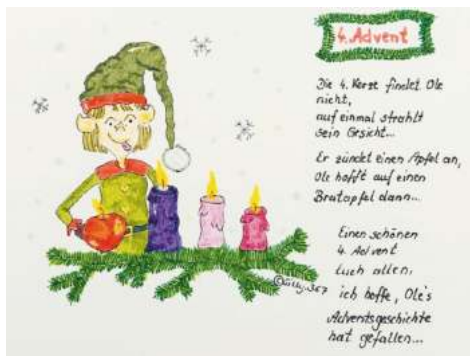 4. Advent
Die 4. Kerze findet Ole
nicht,
auf einmal strahlt
sein Gesicht...
Er zündet einen Apfel an,
Ole hofft auf einen
Bratapfel dann...
Einen schönen
4. Advent
Euch allen,
ich hoffe, Ole's
Adventsgeschichte
hat gefallen...